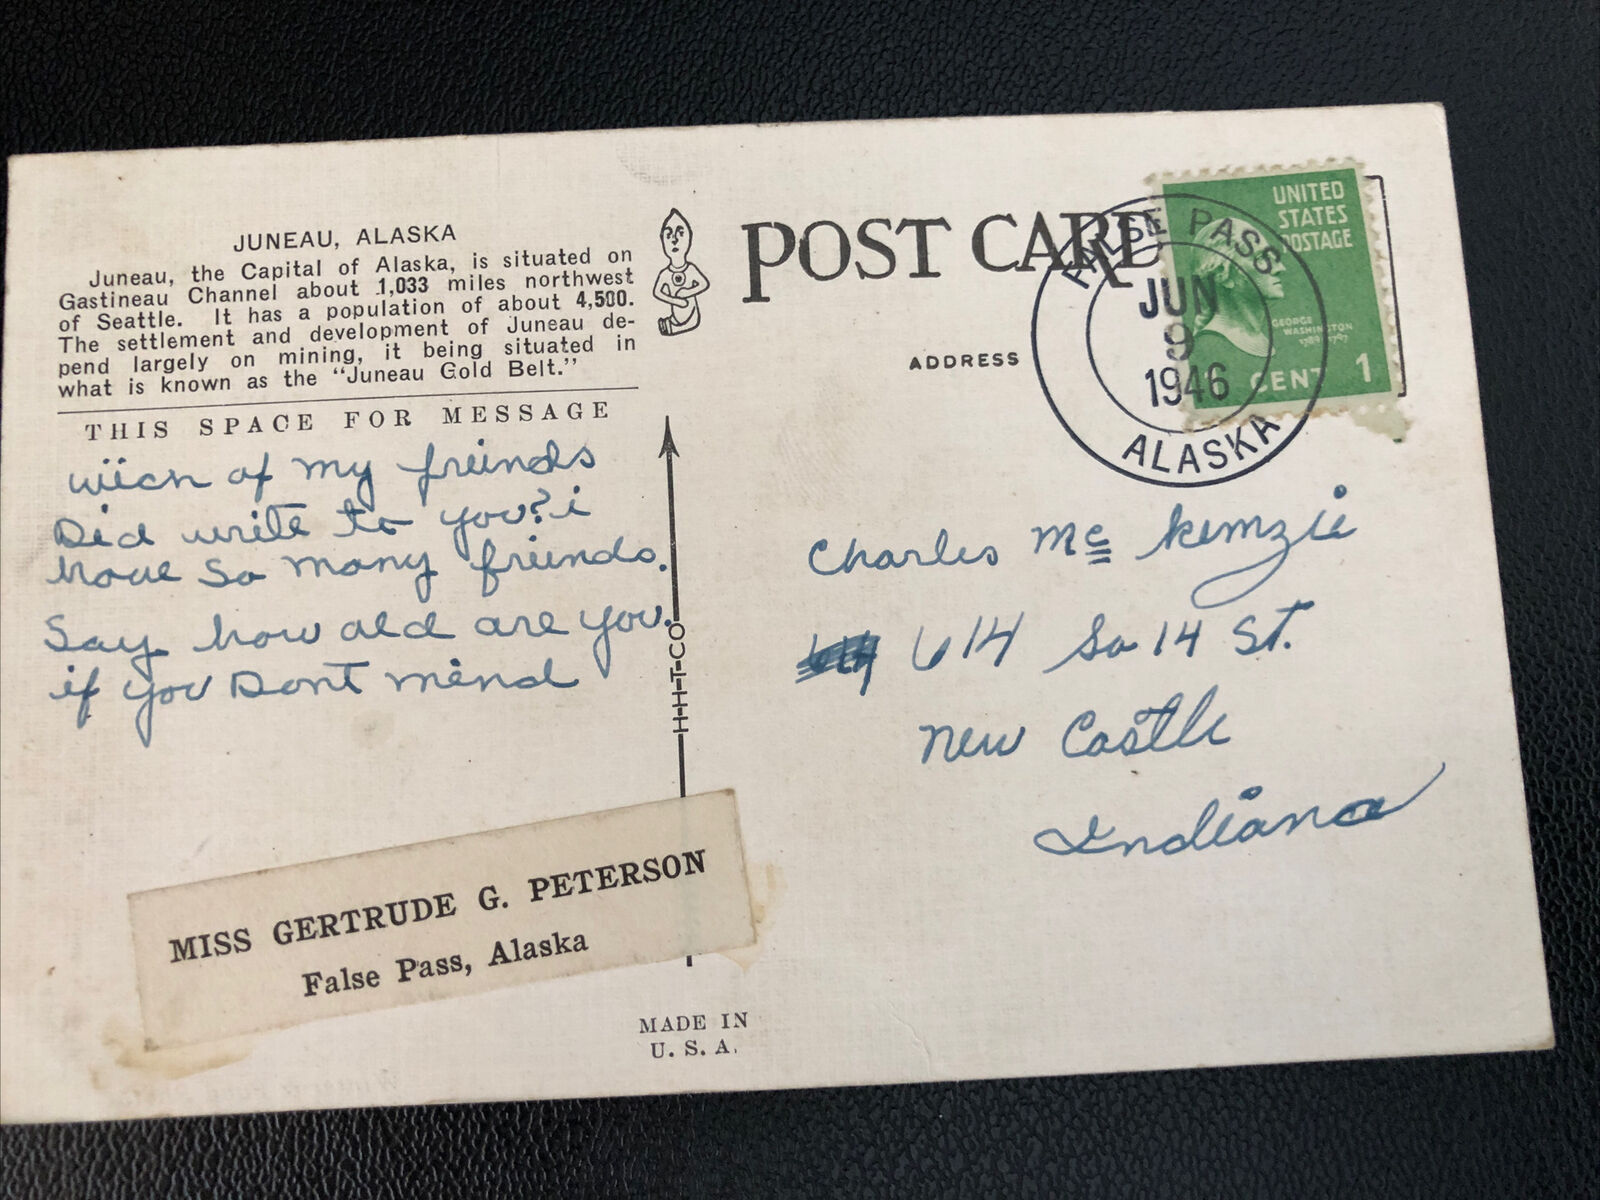 JUNEAU, ALASKA
Juneau, the Capital of Alaska, is situated on
Gastineau Channel about 1,033 miles northwest
of Seattle. It has a population of about 4,500.
The settlement and development of Juneau de-
pend largely on mining, it being situated in
what is known as the "Juneau Gold Belt."
THIS SPACE FOR MESSAGE
wiich of my freinds
Did write to you? i
have so many friends.
Say how old are you.
if you Dont mind
MISS GERTRUDE G. PETERSON
False Pass, Alaska
H-H-T-CO
MADE IN
U. S. A.
POST CARD
ADDRESS
FALSE PASS
JUN
9
1946
ALASKA
UNITED
STATES
POSTAGE
GEORGE
WASHINGTON
1789-1797
CENT 1
Charles Mc Kemzie
614 So 14 St.
New Castle
Indiana